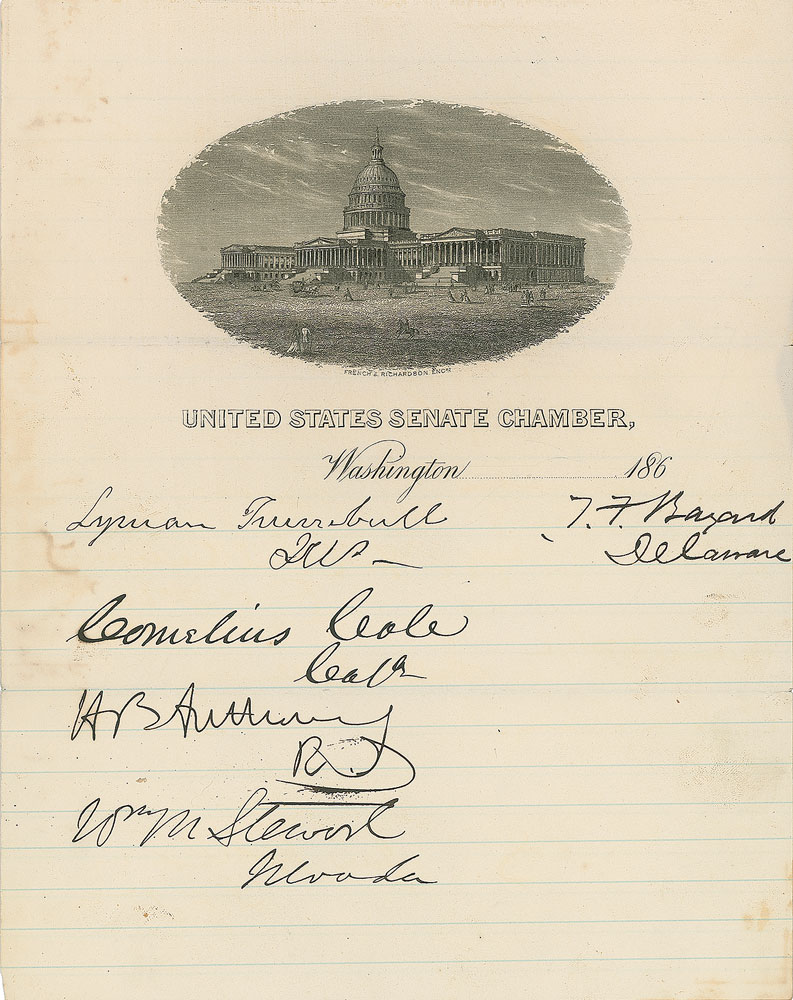 FRENCH & RICHARDSON ENGRS
UNITED STATES SENATE CHAMBER,
Washington 186
Lyman Trumbull
Ills
T. F. Bayard
Delaware
Cornelius Cole
Cala
H B Anthony
R. I
Wm M Stewart
Nevada